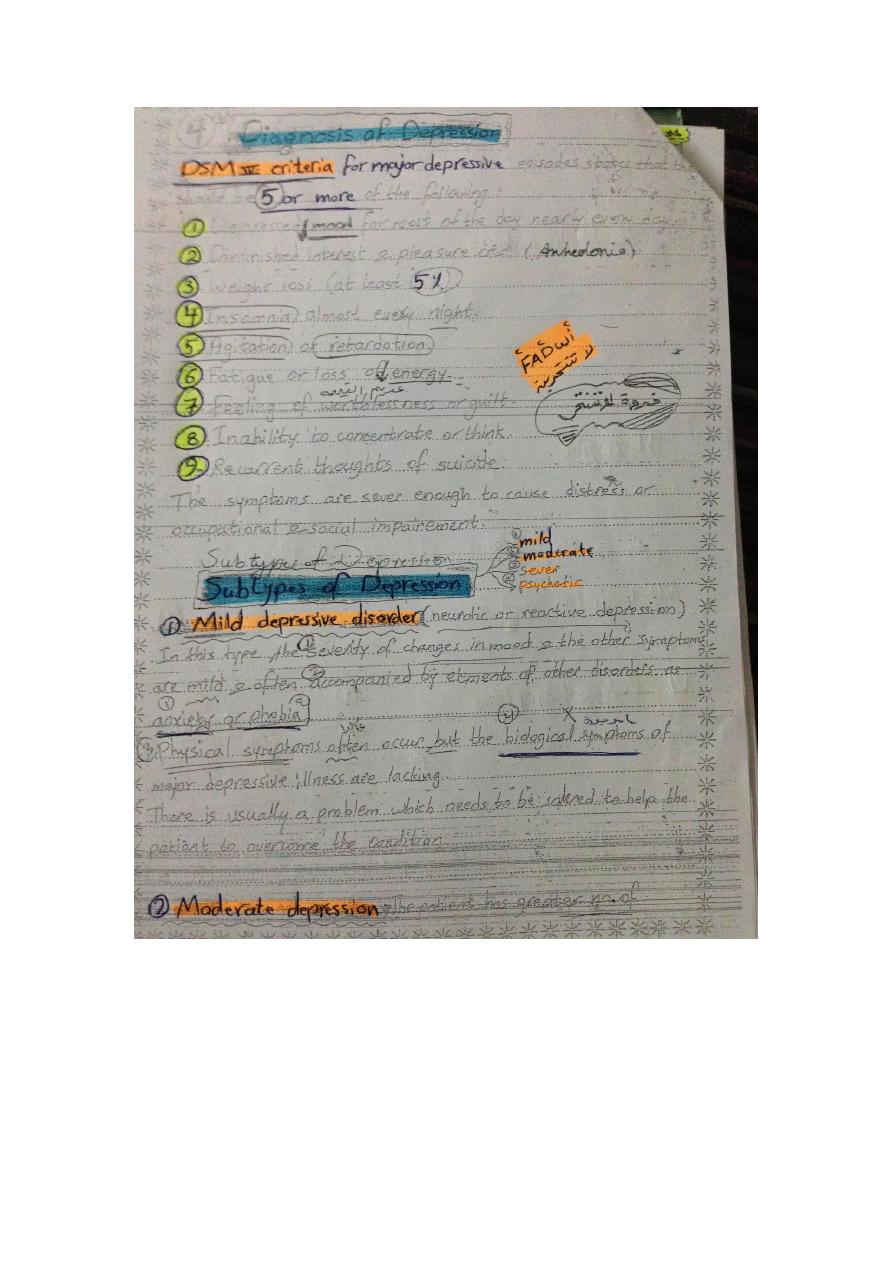 4
Diagnosis of Depression
DSM IV criteria for major depressive episodes states that
should be 5 or more of the following :
1 Depressed mood for most of the day nearly every day.
2 Diminished interest & pleasure (Anhedonia)
3 Weight loss (at least 5%)
4 Insomnia) almost every night.
5 Agitation) or retardation)
6 Fatigue or loss of energy.
أسـ
FADـ
لا تنتحرين
عديم القيمة
7 Feeling of worthlessness or guilt
فدوة لا تنتحر
8 Inability to concentrate or think.
9 Recurrent thoughts of suicide.
The symptoms are sever enough to cause distress or
occupational & social impairement.
Subtypes of Depression
Subtypes of Depression
mild
moderate
sever
psychotic
1 Mild depressive disorder (neurotic or reactive depression)
In this type, the 1 severity of changes in mood & the other symptoms
are mild & often 2 accompanied by elements of other disorders as
1 anxiety or phobia 2
3 Physical symptoms often occur but the 4 biological symptoms of
major depressive illness are lacking.
There is usually a problem which needs to be solved to help the
patient to overcome the condition
2 Moderate depression: The patient has greater no. of